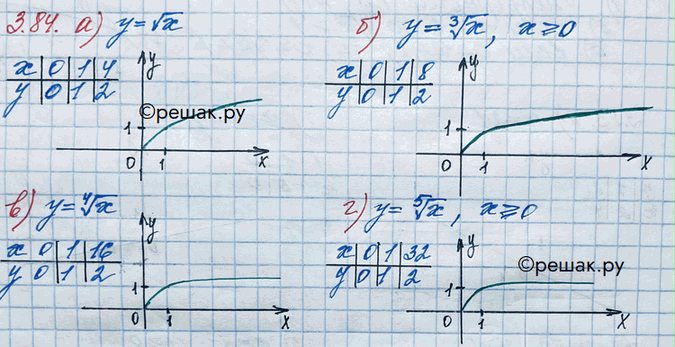 3.84. а) y = √x
x | 0 | 1 | 4
y | 0 | 1 | 2
y
1
0 1 x
©решак.ру
б) y = ∛x, x ⩾ 0
x | 0 | 1 | 8
y | 0 | 1 | 2
y
1
0 1 x
в) y = ∜x
x 0 | 1 | 16
y 0 | 1 | 2
y
1
0 1 x
г) y = ⁵√x, x ⩾ 0
x | 0 | 1 | 32
y | 0 | 1 | 2
y
1
0 1 x
©решак.ру